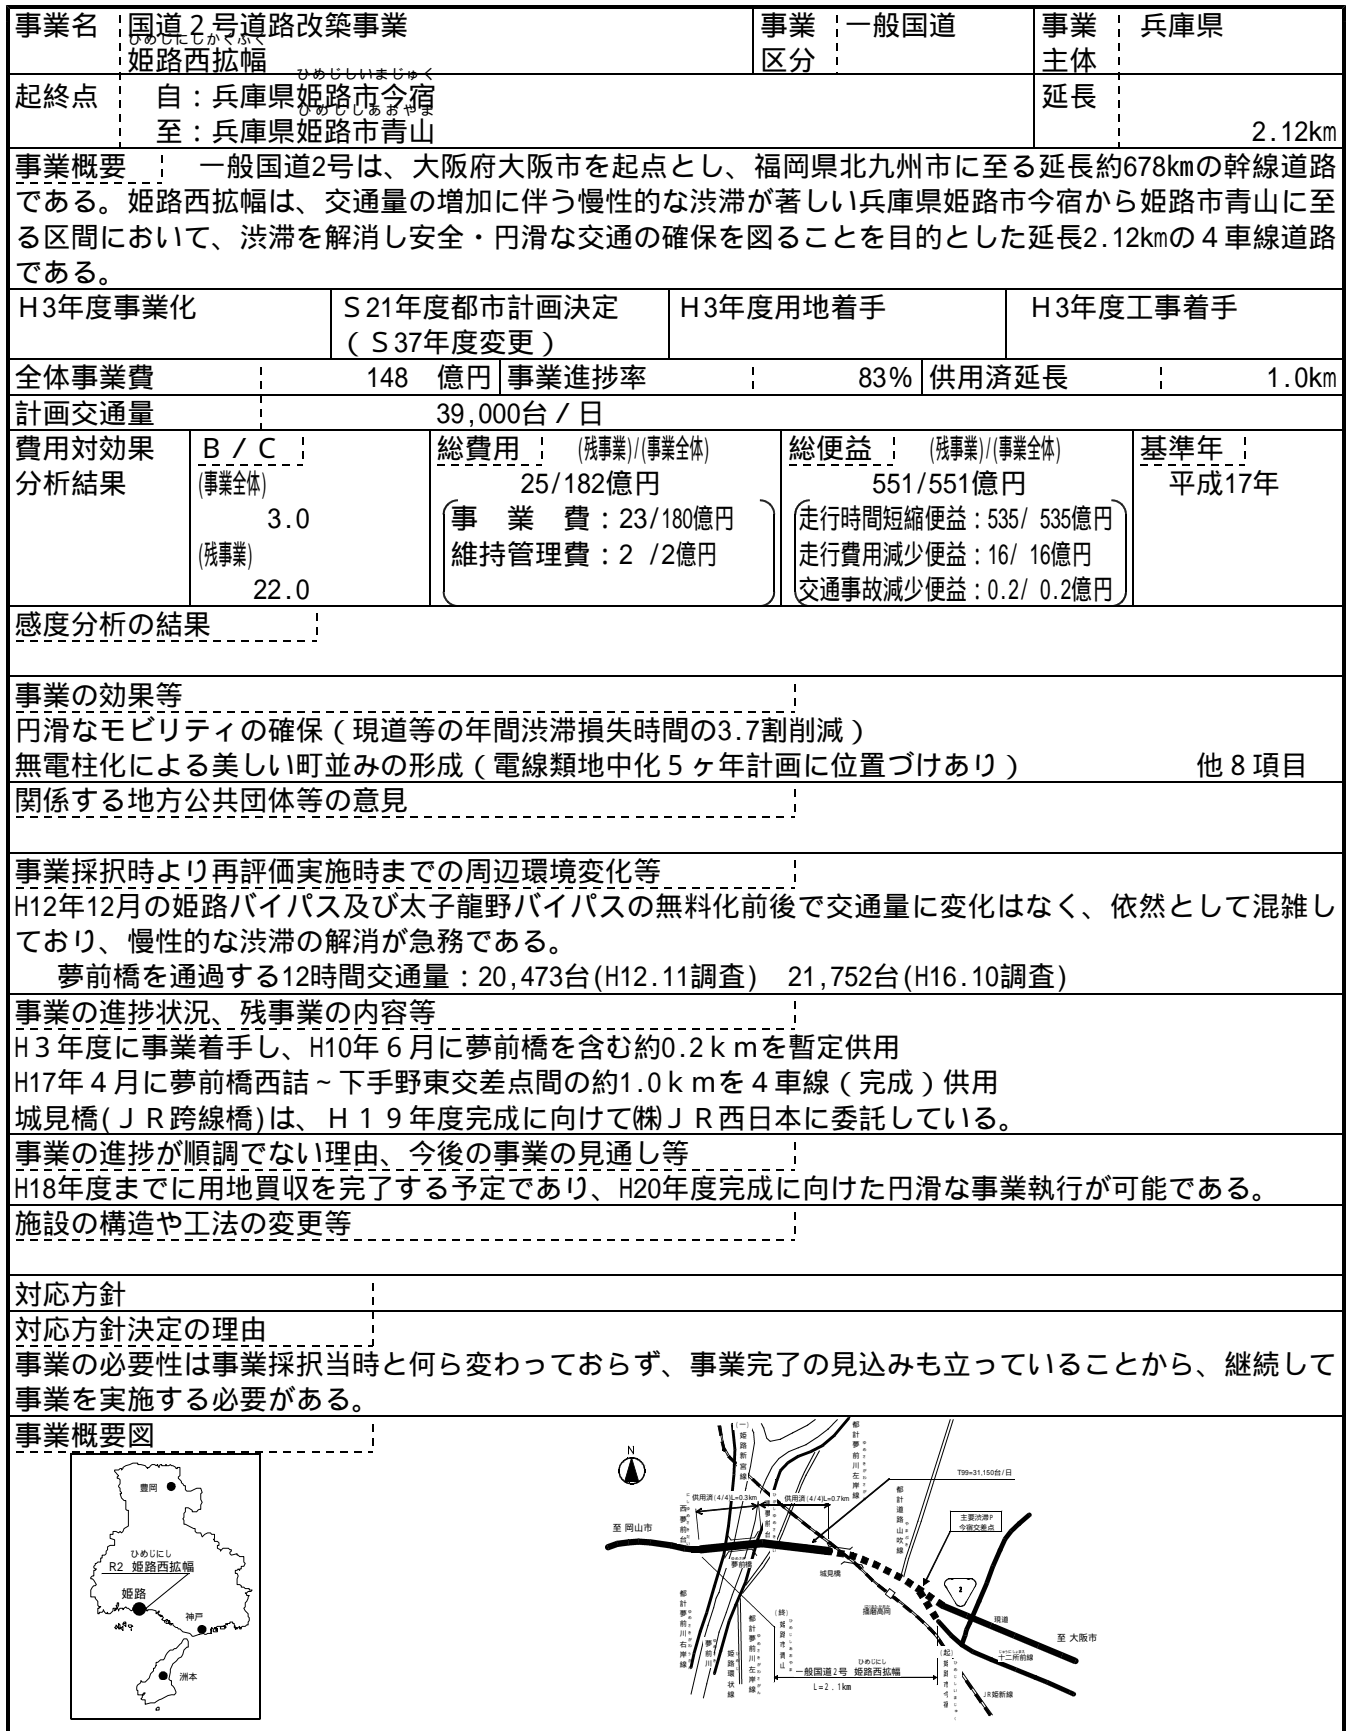 事業名 国道２号道路改築事業 事業 一般国道 事業 兵庫県
ひめじにしかくふく
姫路西拡幅 区分 主体
ひめじしいまじゅく
起終点 自：兵庫県姫路市今宿 延長
ひめじしあおやま
至：兵庫県姫路市青山 2.12km
事業概要 一般国道2号は、大阪府大阪市を起点とし、福岡県北九州市に至る延長約678㎞の幹線道路
である。姫路西拡幅は、交通量の増加に伴う慢性的な渋滞が著しい兵庫県姫路市今宿から姫路市青山に至
る区間において、渋滞を解消し安全・円滑な交通の確保を図ることを目的とした延長2.12㎞の４車線道路
である。
Ｈ3年度事業化 Ｓ21年度都市計画決定 Ｈ3年度用地着手 Ｈ3年度工事着手
（Ｓ37年度変更）
全体事業費 148 億円 事業進捗率 83% 供用済延長 1.0km
計画交通量 39,000台／日
費用対効果 Ｂ／Ｃ 総費用 (残事業)/(事業全体) 総便益 (残事業)/(事業全体) 基準年
分析結果 (事業全体) 25/182億円 551/551億円 平成17年
3.0 事 業 費：23/180億円 走行時間短縮便益：535/ 535億円
(残事業) 維持管理費：2 /2億円 走行費用減少便益：16/ 16億円
22.0 交通事故減少便益：0.2/ 0.2億円
感度分析の結果
事業の効果等
円滑なモビリティの確保（現道等の年間渋滞損失時間の3.7割削減）
無電柱化による美しい町並みの形成（電線類地中化５ヶ年計画に位置づけあり） 他８項目
関係する地方公共団体等の意見
事業採択時より再評価実施時までの周辺環境変化等
H12年12月の姫路バイパス及び太子龍野バイパスの無料化前後で交通量に変化はなく、依然として混雑し
ており、慢性的な渋滞の解消が急務である。
夢前橋を通過する12時間交通量：20,473台(H12.11調査) 21,752台(H16.10調査)
事業の進捗状況、残事業の内容等
H３年度に事業着手し、H10年６月に夢前橋を含む約0.2ｋｍを暫定供用
H17年４月に夢前橋西詰~下手野東交差点間の約1.0ｋｍを４車線（完成）供用
城見橋(ＪＲ跨線橋)は、Ｈ１９年度完成に向けて㈱ＪＲ西日本に委託している。
事業の進捗が順調でない理由、今後の事業の見通し等
H18年度までに用地買収を完了する予定であり、H20年度完成に向けた円滑な事業執行が可能である。
施設の構造や工法の変更等
対応方針
対応方針決定の理由
事業の必要性は事業採択当時と何ら変わっておらず、事業完了の見込みも立っていることから、継続して
事業を実施する必要がある。
事業概要図
豊岡
ひめじにし
R2 姫路西拡幅
姫路
神戸
洲本
N
(一)姫路新宮線
都計夢前川左岸線
T99=31,150台/日
供用済(4/4)L=0.3km
供用済(4/4)L=0.7km
西夢前台
東夢前台
都計道路山吹線
主要渋滞P
今宿交差点
至 岡山市
夢前橋
城見橋
播磨高岡
2
現道
至 大阪市
十二所前線
都計夢前川右岸線
夢前川
姫路環状線
都計夢前川左岸線
(終)姫路市青山
(起)姫路市今宿
ひめじにし
一般国道2号 姫路西拡幅
L=2.1km
JR姫新線